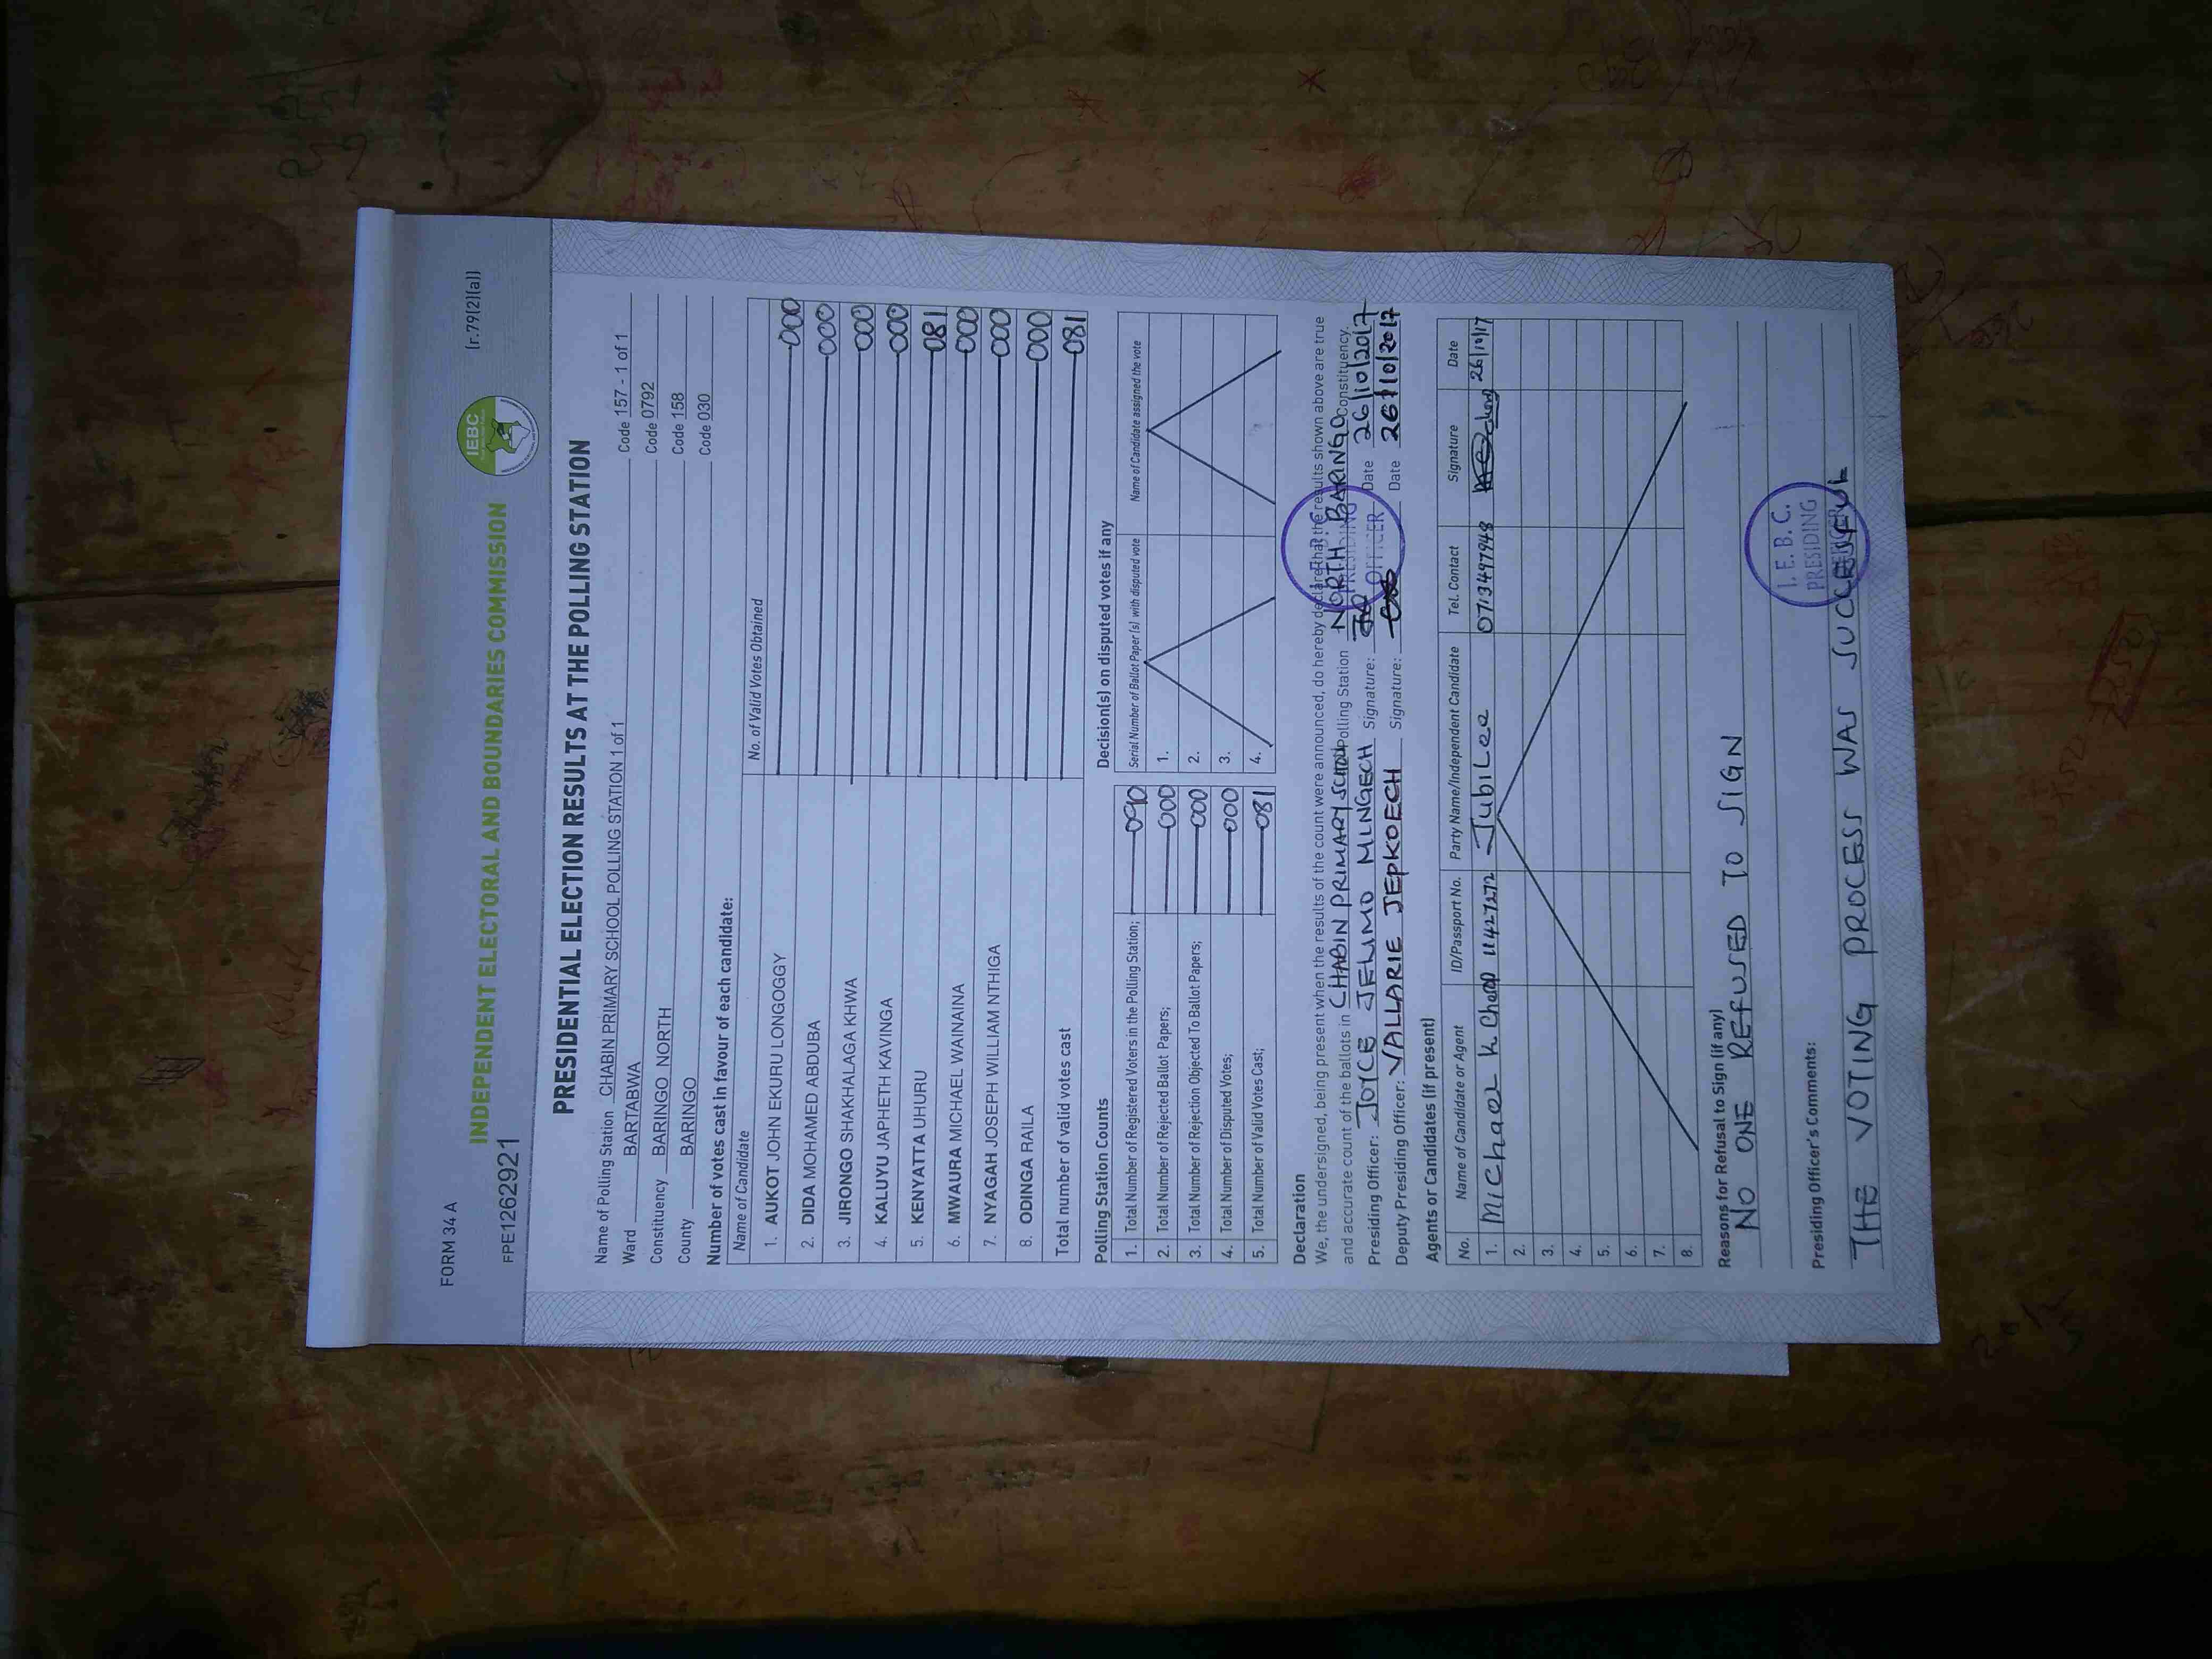 FORM 34 A
(r.79(2)(a))
IEBC
INDEPENDENT ELECTORAL AND BOUNDARIES COMMISSION
FPE1262921
PRESIDENTIAL ELECTION RESULTS AT THE POLLING STATION
Name of Polling Station CHABIN PRIMARY SCHOOL POLLING STATION 1 of 1 Code 157 - 1 of 1
Ward BARTABWA Code 0792
Constituency BARINGO NORTH Code 158
County BARINGO Code 030
Number of votes cast in favour of each candidate:
Name of Candidate No. of Valid Votes Obtained
1. AUKOT JOHN EKURU LONGOGGY 000
2. DIDA MOHAMED ABDUBA 000
3. JIRONGO SHAKHALAGA KHWA 000
4. KALUYU JAPHETH KAVINGA 000
5. KENYATTA UHURU 081
6. MWAURA MICHAEL WAINAINA 000
7. NYAGAH JOSEPH WILLIAM NTHIGA 000
8. ODINGA RAILA 000
Total number of valid votes cast 081
Polling Station Counts
1. Total Number of Registered Voters in the Polling Station; 090
2. Total Number of Rejected Ballot Papers; 000
3. Total Number of Rejection Objected To Ballot Papers; 000
4. Total Number of Disputed Votes; 000
5. Total Number of Valid Votes Cast; 081
Decision(s) on disputed votes if any
Serial Number of Ballot Paper(s) with disputed vote Name of Candidate assigned the vote
1.
2.
3.
4.
Declaration
We, the undersigned, being present when the results of the count were announced, do hereby declare that the results shown above are true
and accurate count of the ballots in CHABIN PRIMARY SCHOOL Polling Station NORTH BARINGO Constituency.
Presiding Officer: JOYCE JELIMO Signature: Date 26/10/2017
Deputy Presiding Officer: VALLARIE JEPKOECH Signature: Date 26/10/2017
PRESIDING
OFFICER
Agents or Candidates (if present)
No. Name of Candidate or Agent ID/Passport No. Party Name/Independent Candidate Tel. Contact Signature Date
1. Michael K Cherop 11427272 Jubilee 0713497948 26/10/17
2.
3.
4.
5.
6.
7.
8.
Reasons for Refusal to Sign (if any)
NO ONE REFUSED TO SIGN
Presiding Officer's Comments:
THE VOTING PROCESS WAS SUCCESSFUL
I. E. B. C.
PRESIDING